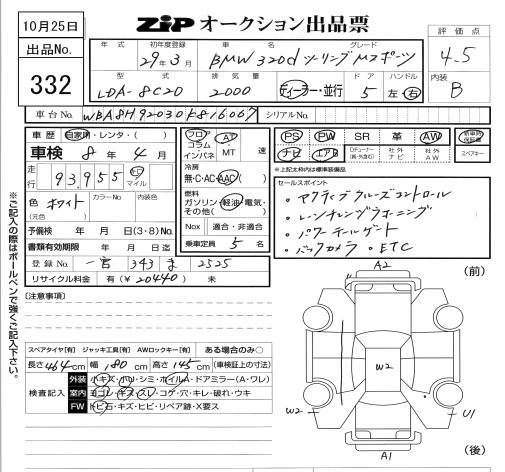 10月25日
出品No.
332
ZIP オークション出品票
評価点
4.5
内装
B
年式 初年度登録 車名 グレード
29年3月 BMW 320d ツーリング Mスポーツ
型式 排気量 ドア ハンドル
LDA-8C20 2000 ディーラー・並行 5 左・右
車台No. WBA8H92030K816067 シリアルNo.
車歴 自家用・レンタ・( )
車検 8年4月
走行 93,955 キロ マイル
色 ホワイト (元色) カラーNo 内装色
予備検 年 月 日(3・8)No.
書類有効期限 年 月 日迄
登録No. 一宮 343 ま 2525
リサイクル料金 有(¥20440) 未
フロア コラム インパネ AT・MT 速
冷房
無・C・AC・AAC( )
燃料
ガソリン・軽油・電気・その他( )
Nox 適合・非適合
乗車定員 5名
PS PW SR 革 AW 新車時保証書
ナビ エアB Dディーラー(純・外含む) 社外ナビ 社外AW スペアキー
※上記太枠内は標準装備品
セールスポイント
・アクティブクルーズコントロール
・レーンチェンジウォーニング
・パワーテールゲート
・バックカメラ ・ETC
※ご記入の際はボールペンで強くご記入下さい。
[注意事項]
スペアタイヤ[有] ジャッキ工具[有] AWロックキー[有] ある場合のみ○
長さ464cm 幅180cm 高さ145cm (車検証上の寸法)
検査記入
外装 小キズ・小凹・シミ・ホイルA・ドアミラー(A・ワレ)
室内 ヨゴレ・キズ・スレ・コゲ・穴・キレ・破れ・ウキ
FW トビ石・キズ・ヒビ・リペア跡・X要ス
A2
(前)
W2
W2
U1
A1
(後)